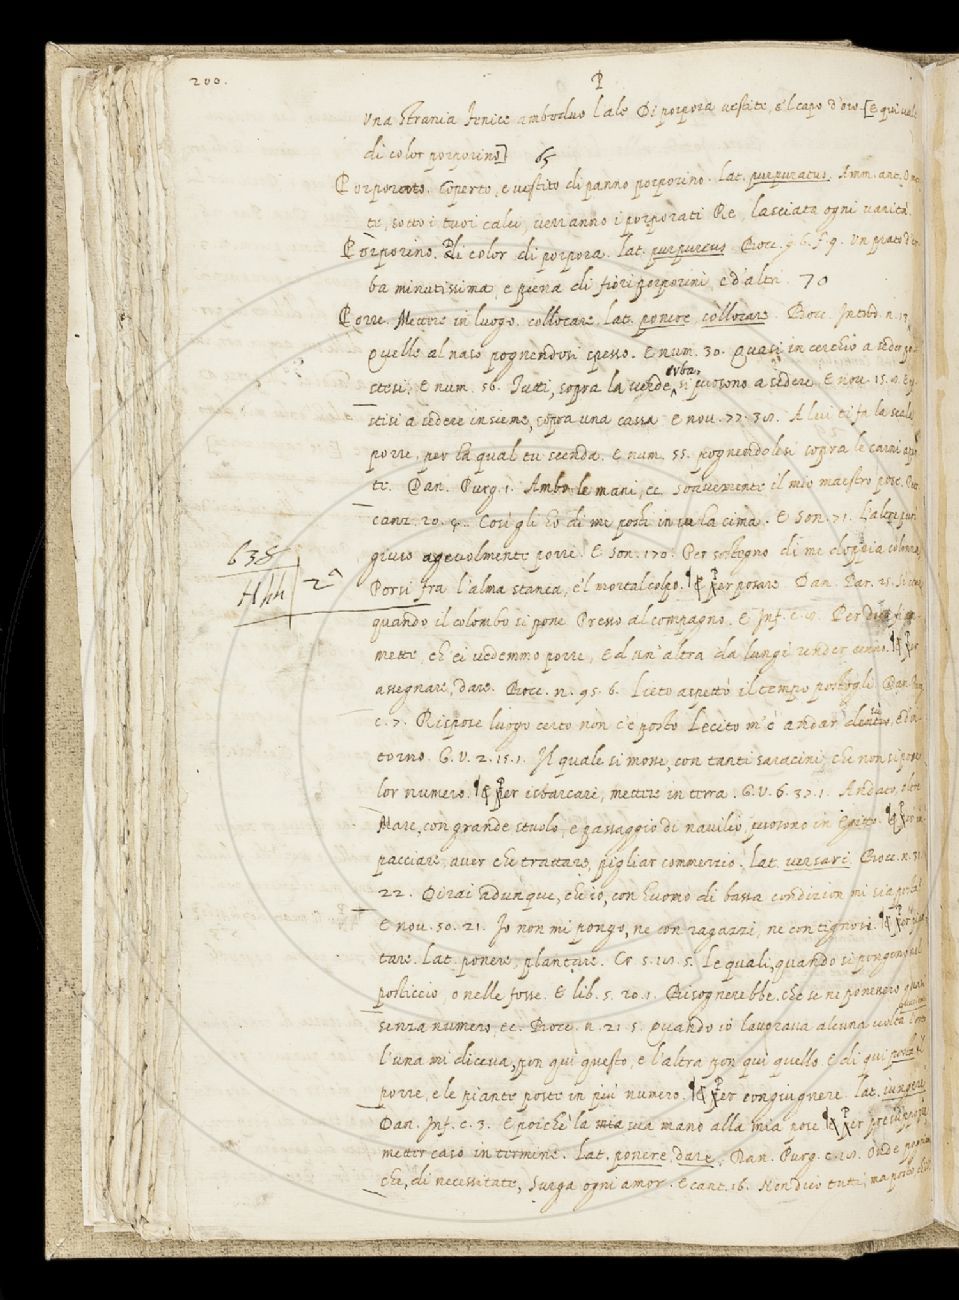 200.
P
Una strania fenice ambedue l'ale Di porpora vestite, e'l capo d'oro. [E qui vale
di color porporino] 65
Porporato. Coperto, e vestito di panno porporino. Lat. purpuratus. Amm. ant.
te, sotto i tuoi calci, verranno i porporati Re, lasciata ogni vanità.
Porporino. Di color di porpora. Lat. purpureus. Bocc. g. 6. f. 9. Un prato d'er
ba minutissima, e piena di fiori porporini, e d'altri. 70
Porre. Mettere in luogo. collocare. Lat. ponere, collocare. Bocc. Introd. n. 13.
Quelle al naso pognendosi spesso. E num. 30. Quasi in cerchio a seder
stesi. E num. 56. Ivati, sopra la verde erba, si puosono a sedere. E nov. 15. 8.
stisi a sedere insieme, sopra una cassa. E nov. 77. 38. A lui ti fa la scala
porre, per la qual tu scenda. E num. 55. pognendolesi sopra le carni
te. Dan. Purg. 1. Ambo le mani, ec. soavemente il mio maestro pose. Petr.
canz. 20. 4. Così gli ho di me posti in su la cima. E Son. 71. L'altre
giuso agevolmente porre. E Son. 170. Per sostegno di me doppia colonna
638
Hhh 2ª
Porsi fra l'alma stanca, e'l mortal colpo. ¶ Per posare. Dan. Par. 25. Sì come
quando il colombo si pone Presso al compagno. E Inf. c. 8. Per due
mette, ch'ei vedemmo porre, E d'un'altra da lungi render cenno. ¶ Per
assegnare, dare. Bocc. n. 95. 6. Lieto aspettò il tempo postogli. Dan.
c. 7. Rispose luogo certo non c'è posto Lecito m'è andar dentro, ed in
torno. G. V. 2. 15. 1. Il quale si mosse, con tanti saracini, che non si
lor numero. ¶ Per isbarcare, mettere in terra. G. V. 6. 37. 1. Andato, oltre
Mare, con grande stuolo, e passaggio di navilio, puosono in Egitto. ¶ Per im
pacciare, aver che trattare, pigliar commerzio. Lat. versari. Bocc. n. 31.
22. Dirai adunque, che io, con huomo di bassa condizion mi sia posta.
E nov. 50. 21. Io non mi pongo, ne con ragazzi, ne con tignosi. ¶ Per pian
tare. Lat. ponere, plantare. Cr. 5. 18. 5. Le quali, quando si pongono nel
posticcio, o nelle fosse. E lib. 5. 20. 1. Bisognerebbe che se ne ponessero quasi
senza numero, ec. Bocc. n. 21. 5. quando io lavorava alcuna volta l'orto
l'una mi diceva, pon quì questo, e l'altra pon quì quello. E di quì posta il
porre, e le piante poste in più numero. ¶ Per congiugnere. Lat. iungere
Dan. Inf. c. 3. E poichè la sua mano alla mia pose. ¶ Per presupporre
metter caso in termine. Lat. ponere, dare. Dan. Purg. c. 18. Onde pognam
che, di necessitate, Surga ogni amor. E cant. 16. Non dico tutti, ma posto, ch'i